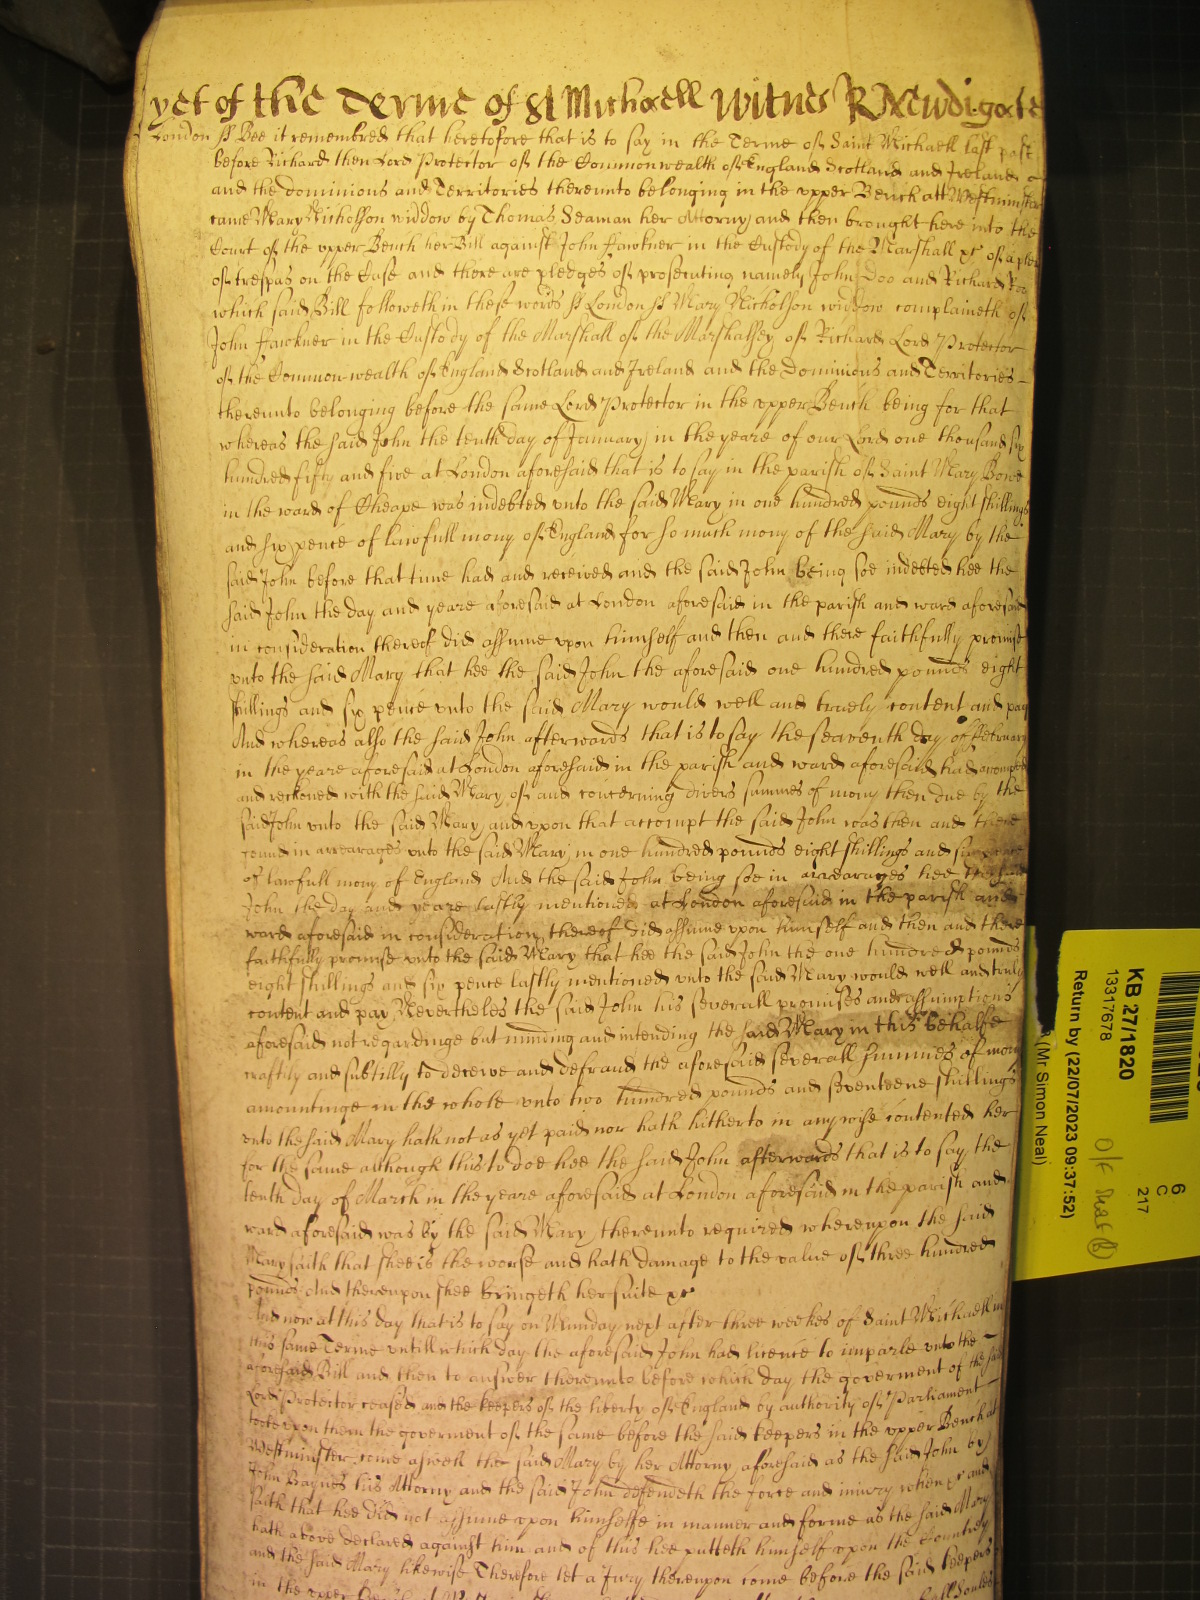 yet of the Terme of St Michaell Witnes R Newdigate
London ss Bee it remembred that heretofore that is to say in the Terme of Saint Michaell last past
before Richard then Lord Protector of the Commonwealth of England Scotland and Ireland
and the dominions and Territories thereunto belonging in the vpper Bench att Westminster
came Mary Nicholson widdow by Thomas Seaman her Attorny and then brought here into the
Court of the vpper Bench her Bill against John Fawkner in the Custody of the Marshall &c of a plea
of trespas on the Case and there are pledges of prosecuting namely John Doo and Richard Roo
which said Bill followeth in these words ss London ss Mary Nicholson widdow complaineth of
John Fawkner in the Custody of the Marshall of the Marshalsey of Richard Lord Protector
of the Common-wealth of England Scotland and Ireland and the Dominions and Territories
thereunto belonging before the same Lord Protector in the vpper Bench being for that
whereas the said John the tenth day of January in the yeare of our Lord one thousand six
hundred fifty and five at London aforesaid that is to say in the parish of Saint Mary Bowe
in the ward of Cheape was indebted vnto the said Mary in one hundred pounds eight shillings
and six pence of lawfull mony of England for so much mony of the said Mary by the
said John before that time had and received and the said John being soe indebted hee the
said John the day and yeare aforesaid at London aforesaid in the parish and ward aforesaid
in consideration thereof did assume vpon himself and then and there faithfully promise
vnto the said Mary that hee the said John the aforesaid one hundred pounds eight
shillings and six pence vnto the said Mary would well and truely content and pay
And whereas also the said John afterwards that is to say the seaventh day of February
in the yeare aforesaid at London aforesaid in the parish and ward aforesaid had accompted
and reckoned with the said Mary of and concerning divers summes of mony then due by the
said John vnto the said Mary and vpon that accompt the said John was then and there
found in arrearages vnto the said Mary in one hundred pounds eight shillings and six pence
of lawfull mony of England And the said John being soe in arrearages hee the said
John the day and yeare lastly mentioned at London aforesaid in the parish and
ward aforesaid in consideration thereof did assume vpon himself and then and there
faithfully promise vnto the said Mary that hee the said John the one hundred pounds
eight shillings and six pence lastly mentioned vnto the said Mary would well and truly
content and pay Nevertheles the said John his severall promises and assumptions
aforesaid not regardinge but minding and intending the said Mary in this behalfe
craftily and subtilly to deceive and defraud the aforesaid severall summes of mony
amountinge in the whole vnto two hundred pounds and seventeene shillings
vnto the said Mary hath not as yet paid nor hath hitherto in any wise contented her
for the same although this to doe hee the said John afterwards that is to say the
tenth day of March in the yeare aforesaid at London aforesaid in the parish and
ward aforesaid was by the said Mary thereunto required wherevpon the said
Mary saith that shee is the worse and hath damage to the value of three hundred
pounds And therevpon shee bringeth her suite &c
And now at this day that is to say on Munday next after three weekes of Saint Michaell in
this same Terme untill which day the aforesaid John had licence to imparle vnto the
aforesaid Bill and then to answer thereunto before which day the goverment of the said
Lord Protector ceased and the keepers of the liberty of England by authority of Parliament
tooke vpon them the goverment of the same before the said keepers in the vpper Bench at
Westminster come aswell the said Mary by her Attorny aforesaid as the said John by
John Baynes his Attorny and the said John defendeth the force and iniury when &c and
saith that hee did not assume vpon himselfe in manner and forme as the said Mary
hath above declared against him and of this hee putteth himself vpon the Country
and the said Mary likewise Therefore let a Jury therevpon come before the said keepers
in the vpper
KB 27/1820
13317678
Return by (22/07/2023 09:37:52)
(Mr Simon Neal)
6
C
217